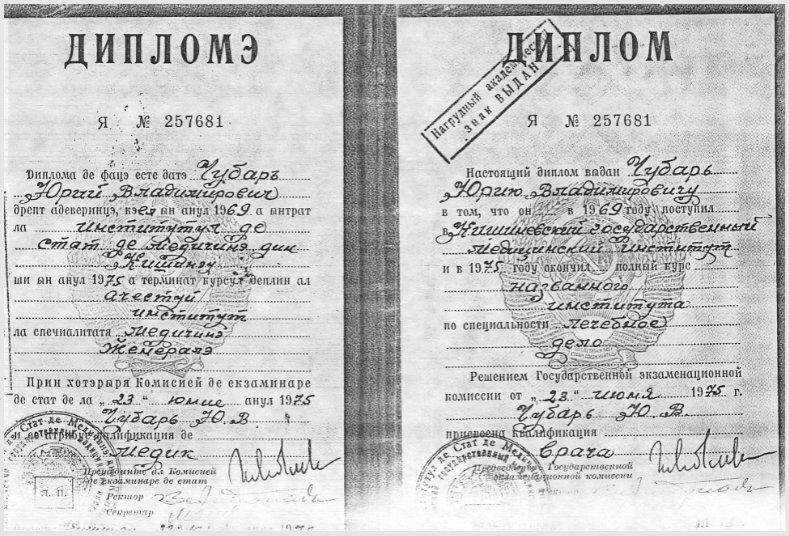 ДИПЛОМЭ
Я № 257681
Диплома де фацэ есте датэ Чубаръ
Юрий Владимирович
дрепт адеверинцэ, кэ ел ын анул 1969 а ынтрат
ла Институтул де
Стат де Медичинэ дин
Кишинэу
ши ын анул 1975 а терминат курсул деплин ал
ачестуй
институт
ла спечиалитатя Медичинэ
Женералэ
Прин хотэрыря Комисией де екзаминаре
де стат де ла „23“ юние анул 1975
Чубарь Ю. В
и с'а атрибуит калификация де
Медик
Прешединте ал Комисией
де екзаминаре де стат
Ректор
Секретар
Л. П.
ДИПЛОМ
Нагрудный академический
знак ВЫДАН
Я № 257681
Настоящий диплом выдан Чубарь
Юрию Владимировичу
в том, что он в 1969 году поступил
в Кишиневский государственный
медицинский институт
и в 1975 году окончил полный курс
названного
института
по специальности лечебное
дело
Решением Государственной экзаменационной
комиссии от „23“ июня 1975 г.
Чубарь Ю. В
присвоена квалификация
врача
Председатель Государственной
экзаменационной комиссии